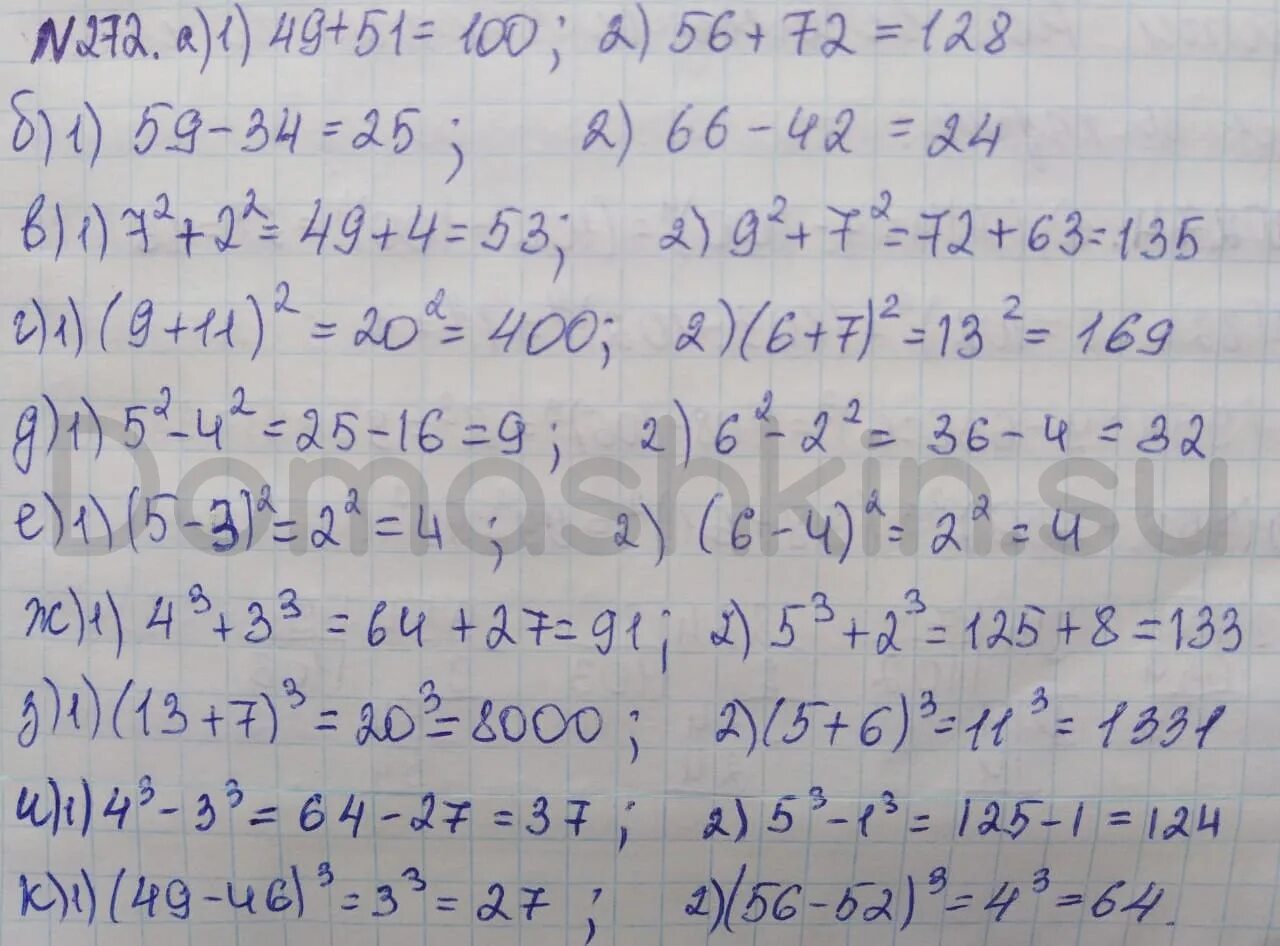 N272. а)1) 49+51=100; 2) 56+72=128
б)1) 59-34=25; 2) 66-42=24
в)1) 7²+2²=49+4=53; 2) 9²+7²=72+63=135
г)1) (9+11)²=20²=400; 2)(6+7)²=13²=169
д)1) 5²-4²=25-16=9; 2) 6²-2²=36-4=32
е)1) (5-3)²=2²=4; 2) (6-4)²=2²=4
ж)1) 4³+3³=64+27=91; 2) 5³+2³=125+8=133
з)1) (13+7)³=20³=8000; 2)(5+6)³=11³=1331
и)1) 4³-3³=64-27=37; 2) 5³-1³=125-1=124
к)1) (49-46)³=3³=27; 2)(56-52)³=4³=64.
Domashkin.su